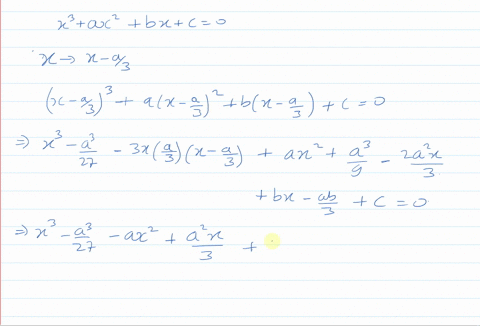 x³ + ax² + bx + c = 0
x → x - a/3
(x - a/3)³ + a(x - a/3)² + b(x - a/3) + c = 0
⇒ x³ - a³/27 - 3x(a/3)(x - a/3) + ax² + a³/9 - 2a²x/3
+ bx - ab/3 + c = 0
⇒ x³ - a³/27 - ax² + a²x/3 +